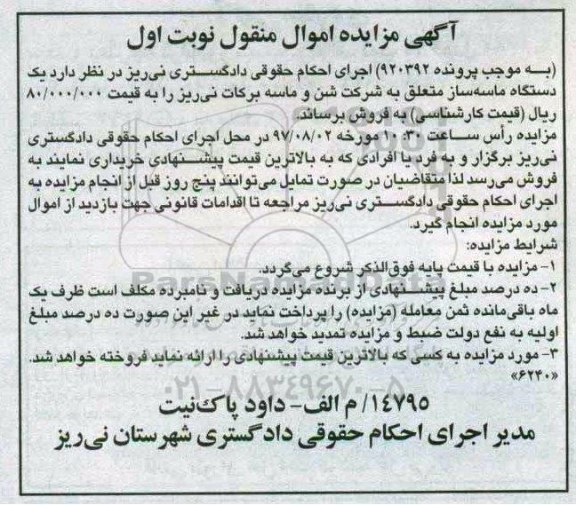 آگهی مزایده اموال منقول نوبت اول
(به موجب پرونده ۹۲۰۳۹۲) اجرای احکام حقوقی دادگستری نی‌ریز در نظر دارد یک
دستگاه ماسه‌ساز متعلق به شرکت شن و ماسه برکات نی‌ریز را به قیمت ۸۰/۰۰۰/۰۰۰
ریال (قیمت کارشناسی) به فروش برساند.
مزایده رأس ساعت ۱۰:۳۰ مورخه ۹۷/۰۸/۰۲ در محل اجرای احکام حقوقی دادگستری
نی‌ریز برگزار و به فرد یا افرادی که به بالاترین قیمت پیشنهادی خریداری نمایند به
فروش می‌رسد لذا متقاضیان در صورت تمایل می‌توانند پنج روز قبل از انجام مزایده به
اجرای احکام حقوقی دادگستری نی‌ریز مراجعه تا اقدامات قانونی جهت بازدید از اموال
مورد مزایده انجام گیرد.
شرایط مزایده:
۱- مزایده با قیمت پایه فوق‌الذکر شروع می‌گردد.
ParsNamadData
۲- ده درصد مبلغ پیشنهادی از برنده مزایده دریافت و نامبرده مکلف است ظرف یک
ماه باقی‌مانده ثمن معامله (مزایده) را پرداخت نماید در غیر این صورت ده درصد مبلغ
اولیه به نفع دولت ضبط و مزایده تمدید خواهد شد.
۳- مورد مزایده به کسی که بالاترین قیمت پیشنهادی را ارائه نماید فروخته خواهد شد.
«۶۲۴۰»
۰۲۱-۸۸۳۴۹۶۷۰-۵
۱۴۷۹۵/ م الف- داود پاک‌نیت
مدیر اجرای احکام حقوقی دادگستری شهرستان نی‌ریز